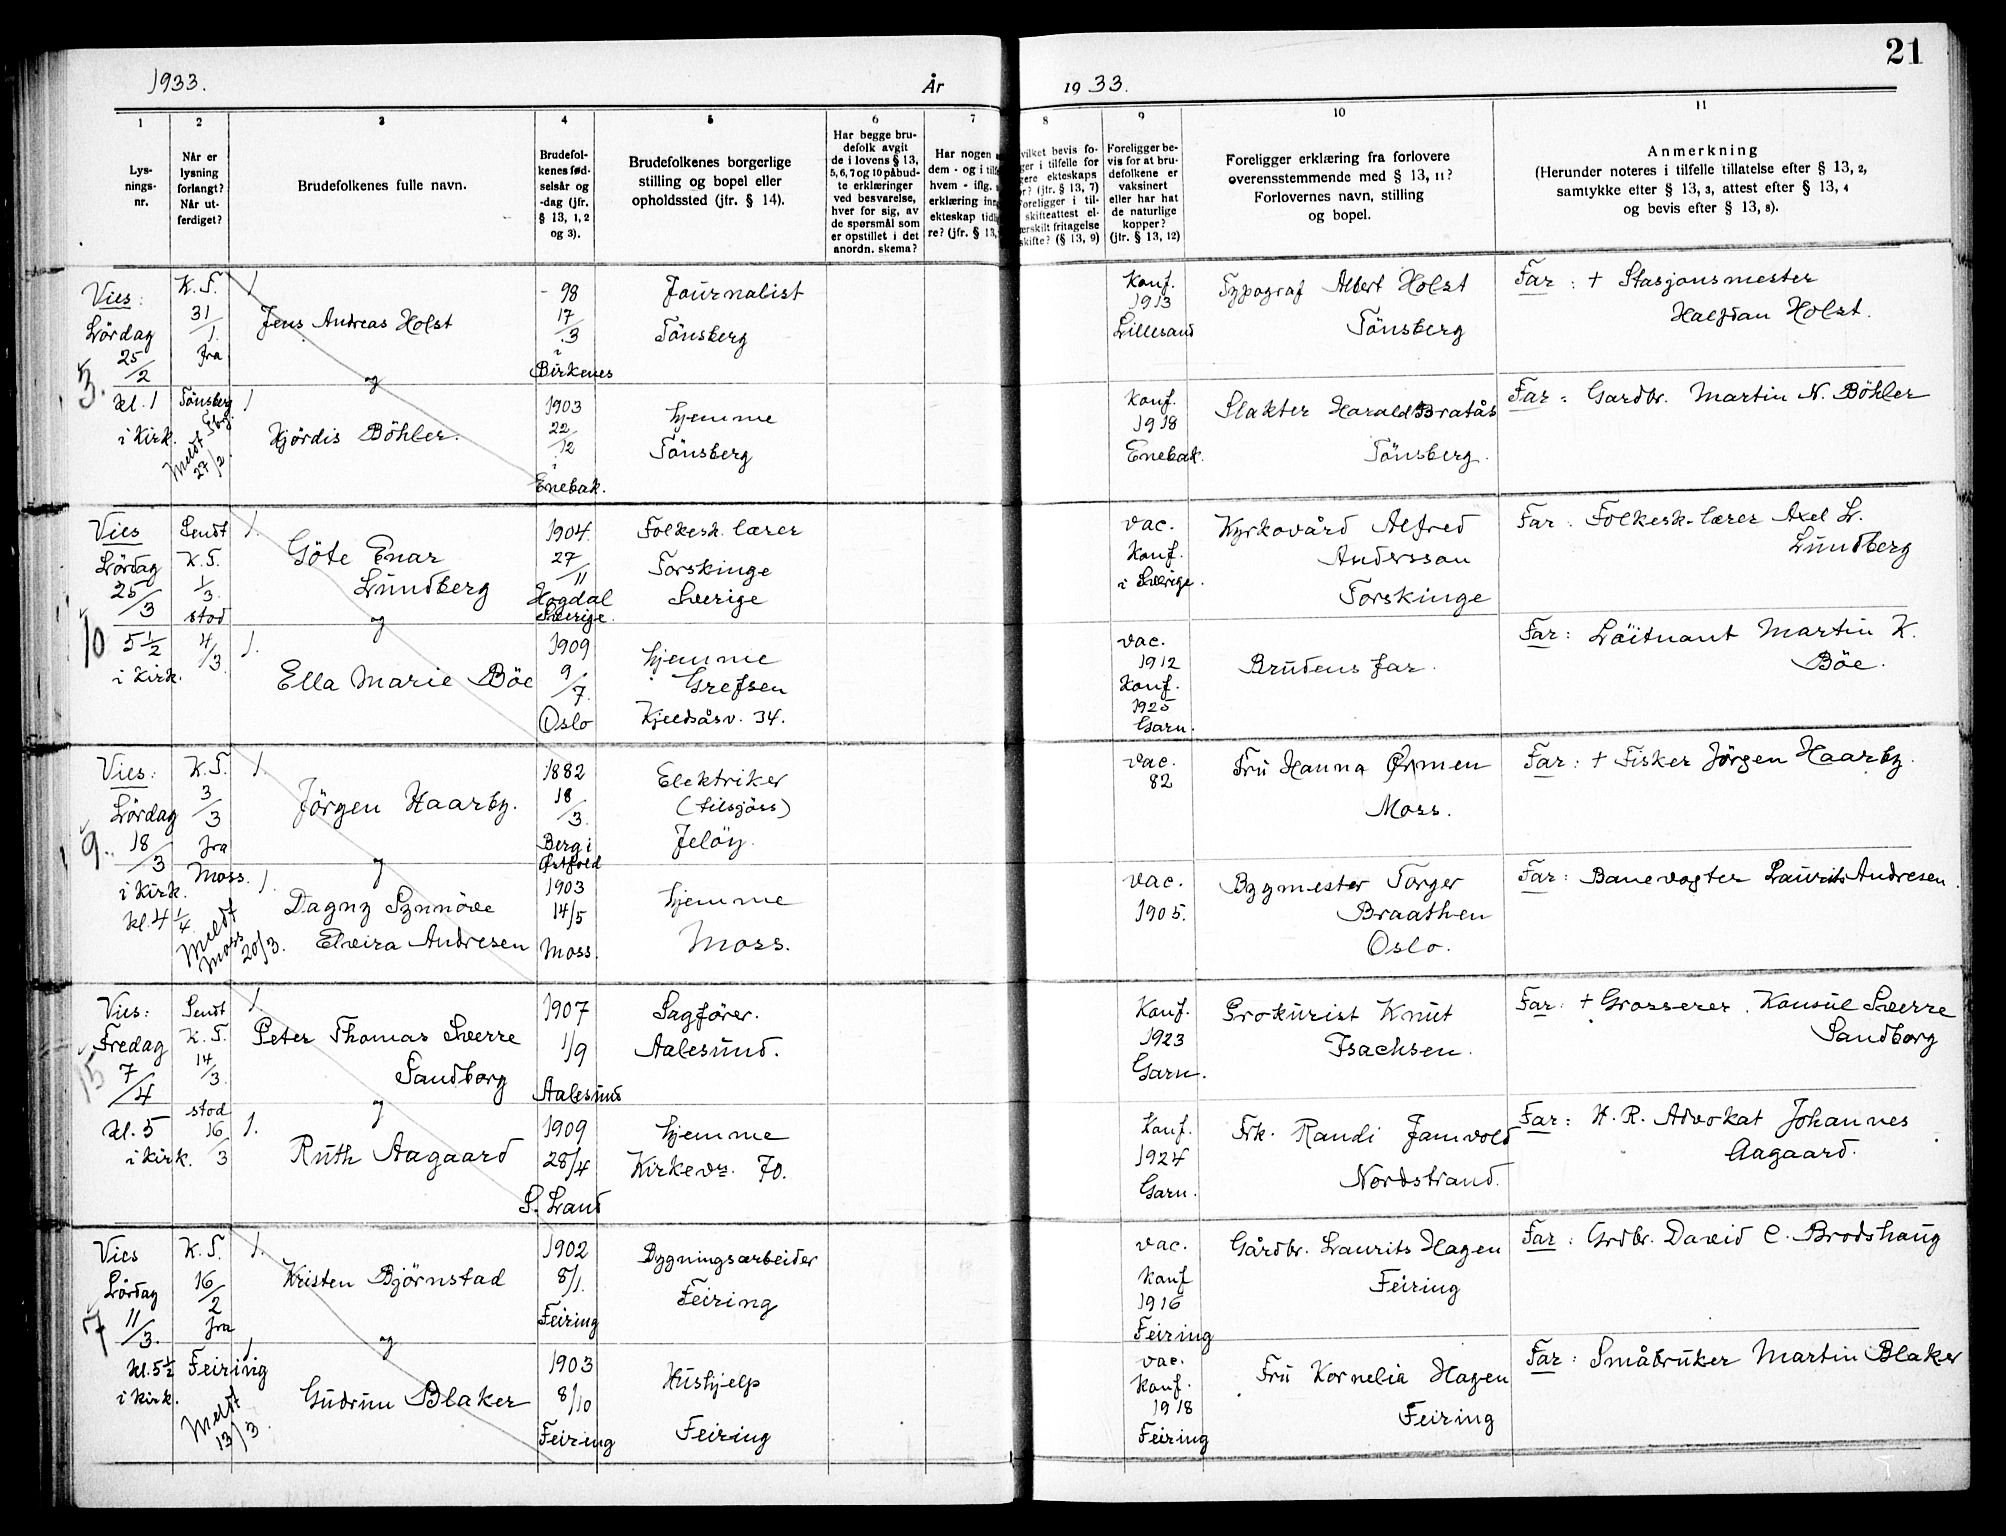 21
1933.
År
19 33.
1
Lys-
nings-
nr.
2
Når er
lysning
forlangt?
Når ut-
ferdiget?
3
Brudefolkenes fulle navn.
4
Brudefol-
kenes fød-
selsår og
-dag (jfr.
§ 13, 1, 2
og 3).
5
Brudefolkenes borgerlige
stilling og bopel eller
opholdssted (jfr. § 14).
6
Har begge bru-
defolk avgit
de i lovens § 13,
5, 6, 7 og 10 påbud-
te erklæringer
ved besvarelse,
hver for sig, av
de spørsmål som
er opstillet i det
anordn. skema?
7
Har nogen
dem - og i tilf
hvem - iflg.
erklæring inn
ekteskap tidl
re? (jfr. § 13,
8
vilket bevis fo-
ger i tilfelle for
gere ekteskaps
r? (jfr. § 13, 7)
Foreligger i til-
skifteattest el-
ærskilt fritagelse
skifte? (§ 13, 9)
9
Foreligger be-
vis for at bru-
defolkene er
vaksinert
eller har hat
de naturlige
kopper?
(jfr. § 13, 12)
10
Foreligger erklæring fra forlovere
overensstemmende med § 13, 11?
Forlovernes navn, stilling
og bopel.
11
Anmerkning
(Herunder noteres i tilfelle tillatelse efter § 13, 2,
samtykke efter § 13, 3, attest efter § 13, 4
og bevis efter § 13, 8).
5.
Vies:
Lördag
25/2
kl. 1
i Kirk.
K. T.
31/1.
fra
Tönsberg
Meldt
27/2.
1
Jens Andreas Holst
og
1
Hjördis Böhler.
- 98
17/3
i
Birkenes
1903
22/12
i
Enebak.
Journalist
Tönsberg
hjemme
Tönsberg
Konf.
1913
Lillesand
Konf.
1918
Enebak.
Typograf Albert Holst
Tönsberg
Slakter Harald Bratås
Tönsberg.
Far : + Stasjonsmester
Halfdan Holst.
Far : Gardbr. Martin N. Böhler
10
Vies
Lördag
25/3
5 ½
i Kirk.
Sendt
K. T.
1/3.
stod
4/3.
1.
Göte Enar
Lundberg
og
1.
Ella Marie Böe
1904.
27/11
Hogdal
Sverige.
1909
9/7.
Oslo
Folkesk. lærer
Torskinge
Sverige
hjemme
Grefsen
Kjelsåsv. 34.
vac.
Konf.
i Sverige.
vac.
1912
Konf.
1925
Garn.
Kyrkovård Alfred
Andersson
Torskinge
Brudens far.
Far : Folkesk-lærer Axel L.
Lundberg
Far : Löitnant Martin K.
Böe.
9.
Vies:
Lördag
18/3
i Kirk.
kl. 4 ¼
K. T.
3/3
fra
Moss.
Meldt
Moss
20/3.
1.
Jörgen Haarby.
og
1.
Dagny Synnöve
Elvira Andresen
1882
18/3.
Berg i
Østfold
1903
14/5
Moss.
Elektriker
(tilsjöss)
Jelöy.
hjemme
Moss.
vac.
82
vac.
1905.
Fru Hanna Ørmen
Moss.
Bygmester Torger
Braathen
Oslo.
Far : + Fisker Jörgen Haarby.
Far : Banevogter Laurits Andresen.
15
Vies:
Fredag
7/4
kl. 5
i Kirk.
Sendt
K. T.
14/3.
stod
16/3
1
Peter Thomas Sverre
Sandborg
og
1.
Ruth Aagaard
1907
1/9
Aalesund
1909
28/4
S. Land
Sagförer.
Aalesund.
hjemme
Kirkev. 70.
Konf.
1923
Garn.
Konf.
1924
Garn.
Prokurist Knut
Isachsen.
Frk. Randi Jamvold
Nordstrand.
Far : + Grosserer. Konsul Sverre
Sandborg
Far : H. R. Advokat Johannes
Aagaard.
7
Vies
Lördag
11/3.
kl. 5 ½
i kirk.
K. T.
16/2
fra
Feiring
Meldt
13/3.
1.
Kristen Bjørnstad
og
1
Gudrun Blaker
1902
8/1.
Feiring
1903
8/10
Feiring
Bygningsarbeider
Feiring
Hushjelp
Feiring
vac.
Konf
1916
Feiring
vac.
Konf.
1918
Feiring
Gårdbr. Laurits Hagen
Feiring
Fru Kornelia Hagen
Feiring
Far : Grdbr. David C. Brodshaug
Far : Småbruker Martin Blaker